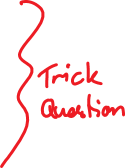 Trick
Question